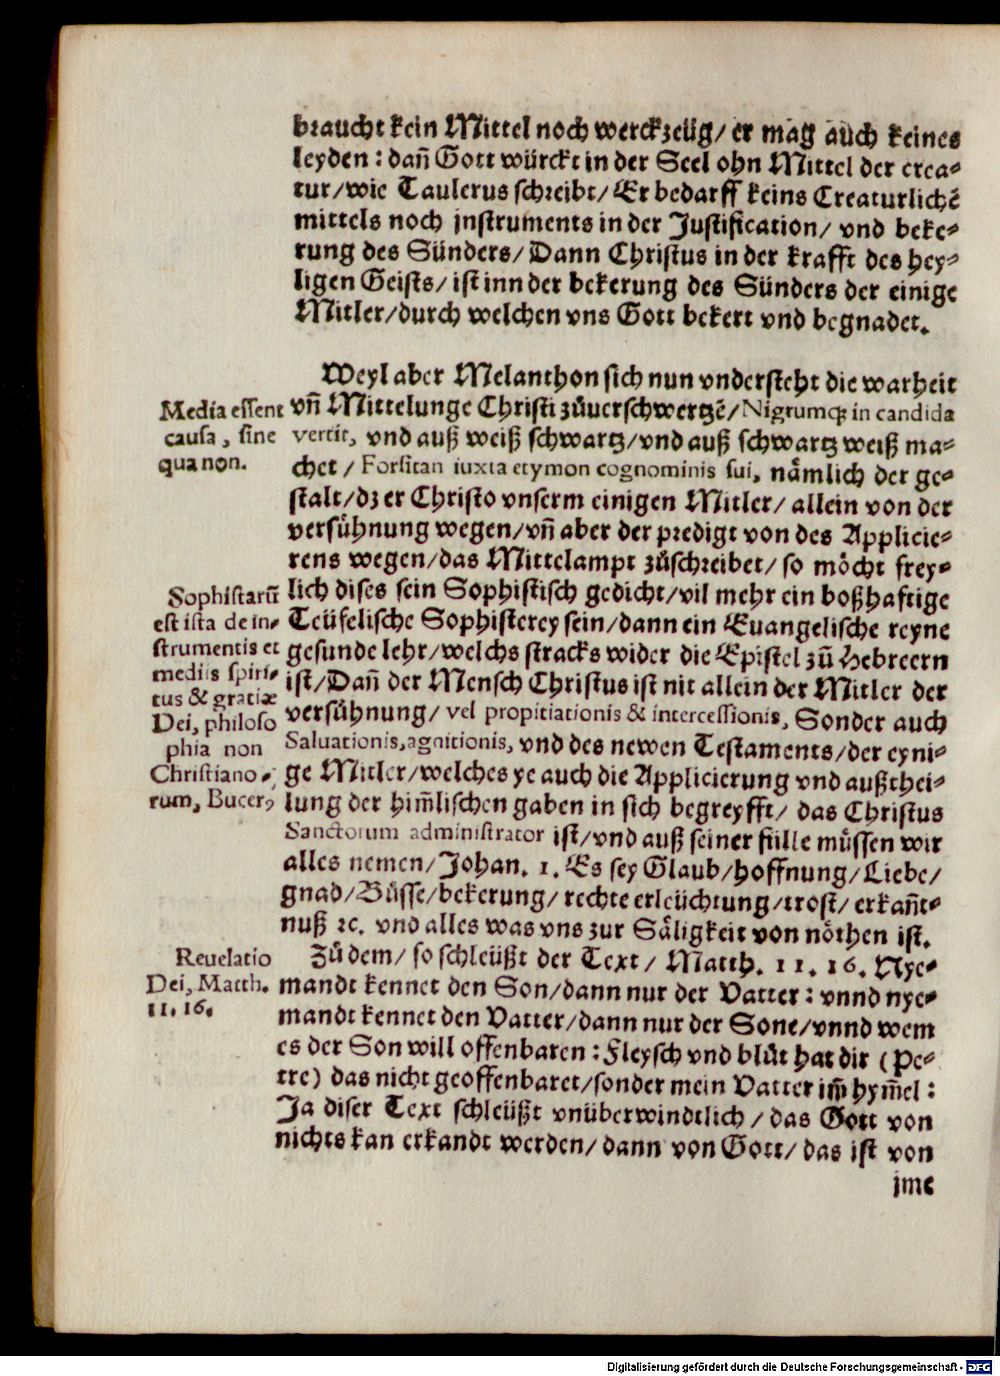 braucht kein Mittel noch werckzeüg/ er mag auch keines
leyden: dañ Gott würckt in der Seel ohn Mittel der crea⸗
tur/wie Taulerus schreibt/ Er bedarff keins Creaturlichē
mittels noch jnstruments in der Justification/ vnd beke⸗
rung des Sünders/ Dann Christus in der krafft des hey⸗
ligen Geists/ ist inn der bekerung des Sünders der einige
Mitler/durch welchen vns Gott bekert vnd begnadet.
Weyl aber Melanthon sich nun vndersteht die warheit
vñ Mittelunge Christi zůuerschwertzē/ Nigrumq́; in candida
vertit, vnd auß weiß schwartz/vnd auß schwartz weiß ma⸗
chet / Forsitan iuxta etymon cognominis sui, nämlich der ge⸗
stalt/dz er Christo vnserm einigen Mitler/ allein von der
versühnung wegen/vñ aber der predigt von des Applicie⸗
rens wegen/das Mittelampt zůschreibet/ so möcht frey⸗
lich dises sein Sophistisch gedicht/vil mehr ein boßhaftige
Teüfelische Sophisterey sein/dann ein Euangelische reyne
gesunde lehr/welchs stracks wider die Epistel zů Hebreern
ist/Dañ der Mensch Christus ist nit allein der Mitler der
versühnung/ vel propitiationis & intercessionis, Sonder auch
Saluationis, agnitionis, vnd des newen Testaments/der eyni⸗
ge Mitler/welches ye auch die Applicierung vnd außthei⸗
lung der him̃lischen gaben in sich begreyfft/ das Christus
Sanctorum administrator ist/vnd auß seiner fülle müssen wir
alles nemen/ Johan. 1. Es sey Glaub/hoffnung/Liebe/
gnad/Bůsse/bekerung/ rechte erleüchtung/trost/ erkañt⸗
nuß ꝛc. vnd alles was vns zur Säligkeit von nöthen ist.
Zů dem/ so schleüßt der Text/ Matth. 11. 16. Nye⸗
mandt kennet den Son/dann nur der Vatter: vnnd nye⸗
mandt kennet den Vatter/dann nur der Sone/vnnd wem
es der Son will offenbaren: Fleysch vnd blůt hat dir (Pe⸗
tre) das nicht geoffenbaret/sonder mein Vatter im̃ hym̃el:
Ja diser Text schleüßt vnüberwindtlich / das Gott von
nichts kan erkandt werden/ dann von Gott/ das ist von
jme
Media essent
causa, sine
qua non.
Sophistarũ
est ista de in⸗
strumentis et
mediis spiri⸗
tus & gratiæ
Dei, philoso
phia non
Christiano⸗
rum, Bucer,
Reuelatio
Dei, Matth.
11. 16.
Digitalisierung gefördert durch die Deutsche Forschungsgemeinschaft - DFG